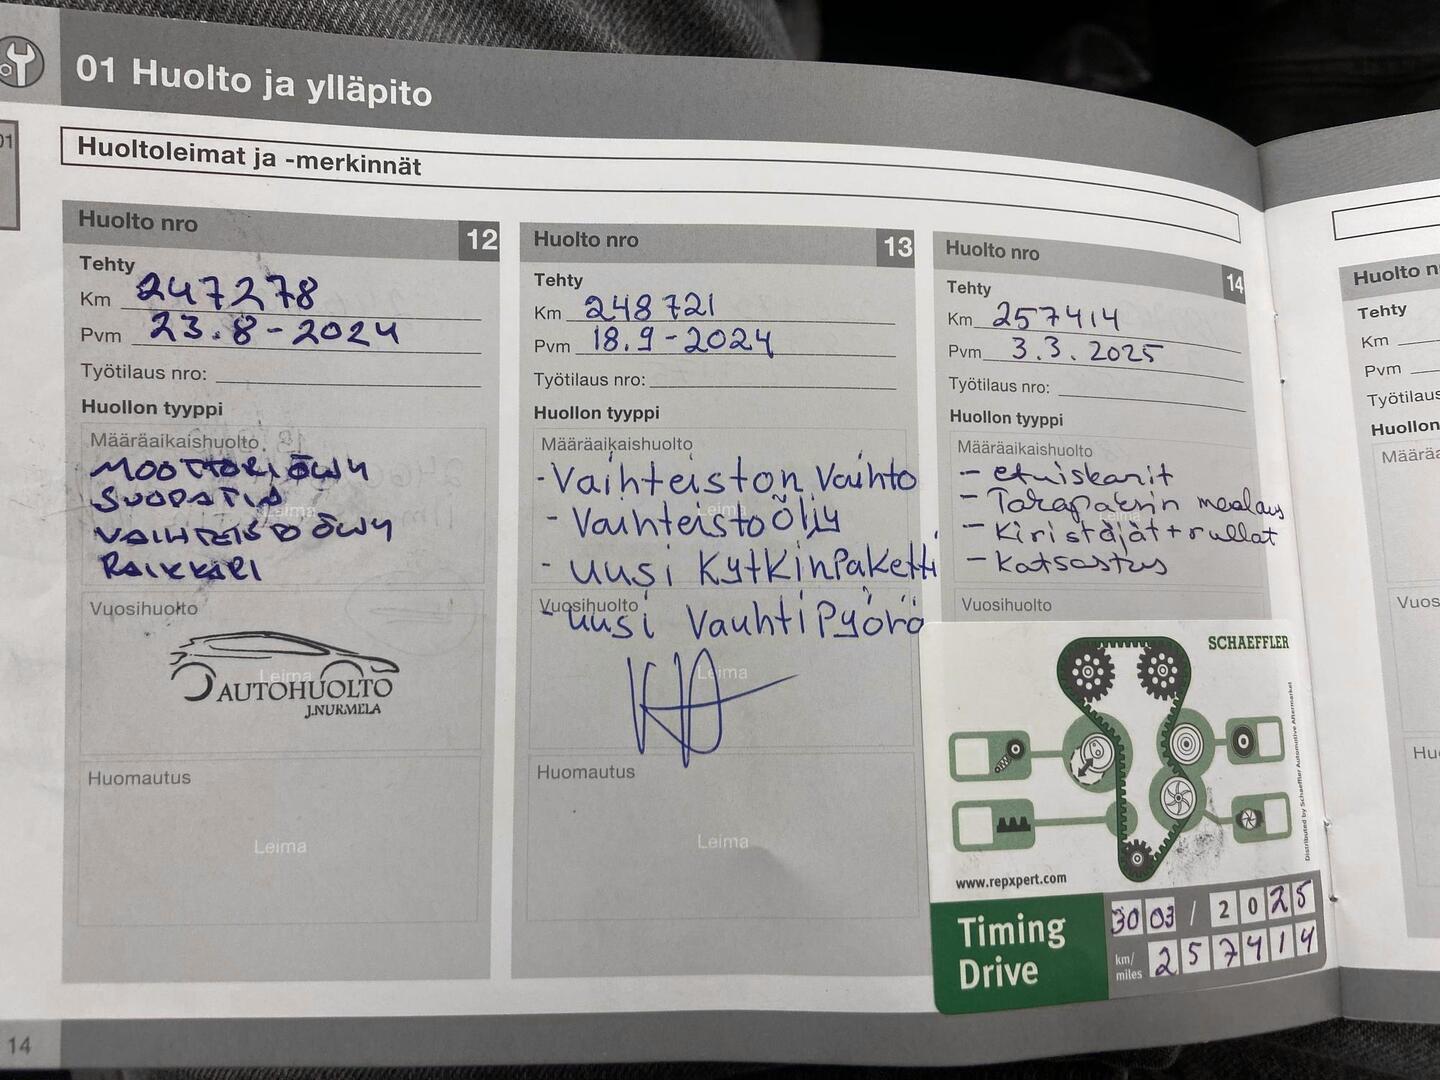 01 Huolto ja ylläpito
01
Huoltoleimat ja -merkinnät
Huolto nro 12
Tehty
Km 247278
Pvm 23.8-2024
Työtilaus nro:
Huollon tyyppi
Määräaikaishuolto
MOOTTORIÖLJY
SUODATIN
VAIHTEISTOÖLJY
RAIKKARI
Vuosihuolto
Leima
AUTOHUOLTO
J.NURMELA
Huomautus
Leima
Huolto nro 13
Tehty
Km 248721
Pvm 18.9-2024
Työtilaus nro:
Huollon tyyppi
Määräaikaishuolto
-Vaihteiston Vaihto
Leima
- VaihteistoÖljy
- uusi KytKinPaketti
Vuosihuolto
-uusi VauhtiPyörä
Leima
Huomautus
Leima
Huolto nro 14
Tehty
Km 257414
Pvm 3.3.2025
Työtilaus nro:
Huollon tyyppi
Määräaikaishuolto
- etuiskarit
- Takapaksin maalaus
Leima
- Kiristäjät + rullat
- Katsastus
Vuosihuolto
SCHAEFFLER
Distributed by Schaeffler Automotive Aftermarket
www.repxpert.com
Timing
Drive
30 03 / 2025
km/
miles
257414
Huolto n
Tehty
Km
Pvm
Työtilaus
Huollon
Määrä
Vuos
Hu
14